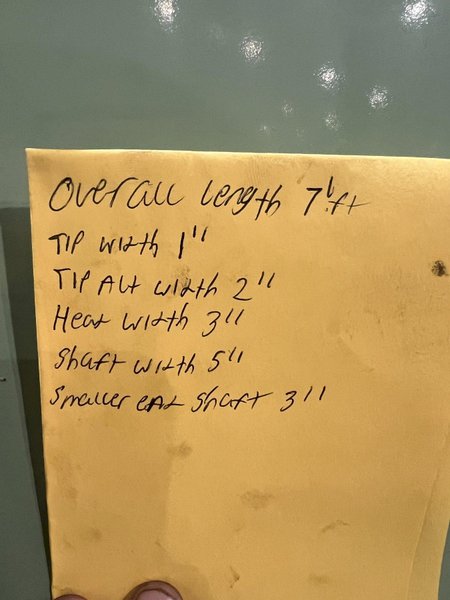 Overall length 7' ft
TIP width 1"
TIP Alt width 2"
Head width 3"
Shaft width 5"
Smaller end shaft 3"